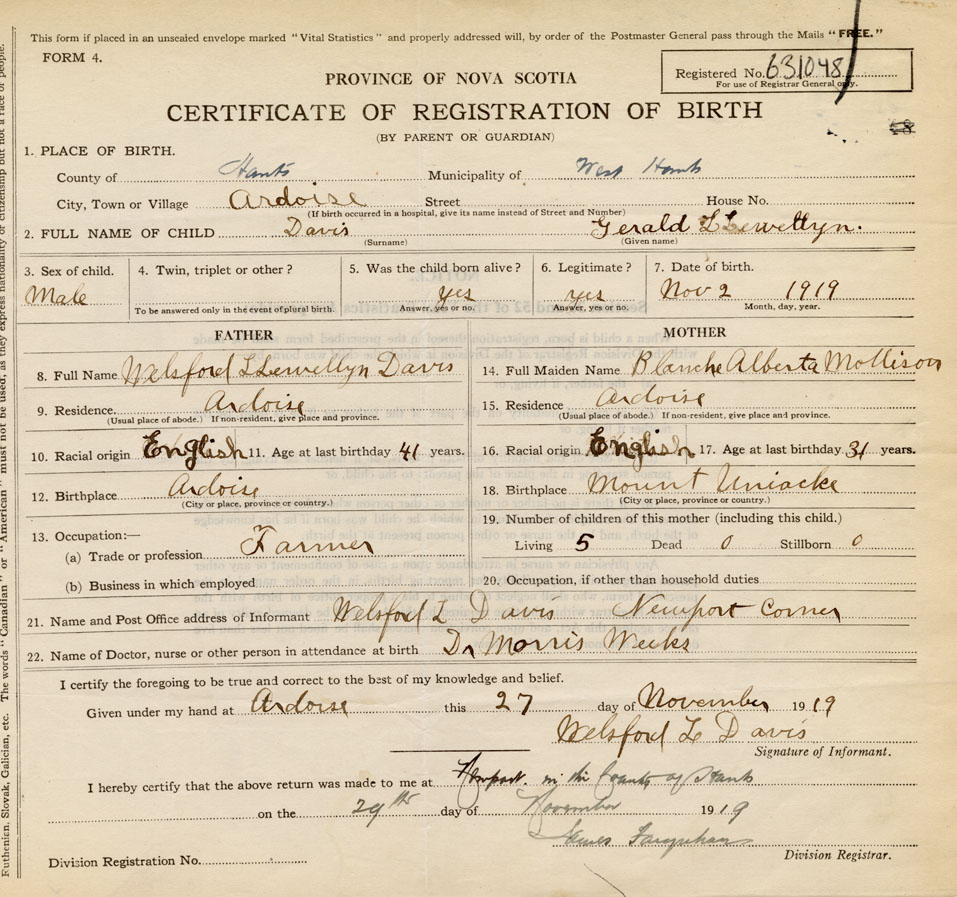 This form if placed in an unsealed envelope marked "Vital Statistics" and properly addressed will, by order of the Postmaster General pass through the Mails "FREE."
FORM 4.
PROVINCE OF NOVA SCOTIA
Registered No. 631048
For use of Registrar General only.
CERTIFICATE OF REGISTRATION OF BIRTH
(BY PARENT OR GUARDIAN)
1. PLACE OF BIRTH.
County of Hants Municipality of West Hants
City, Town or Village Ardoise Street House No.
(If birth occurred in a hospital, give its name instead of Street and Number)
2. FULL NAME OF CHILD Davis Gerald LLewellyn.
(Surname) (Given name)
3. Sex of child. 4. Twin, triplet or other? 5. Was the child born alive? 6. Legitimate? 7. Date of birth.
Male yes yes Nov 2 1919
To be answered only in the event of plural birth. Answer, yes or no. Answer, yes or no. Month, day, year.
FATHER MOTHER
8. Full Name Welsford LLewellyn Davis 14. Full Maiden Name Blanche Alberta Mollison
9. Residence. Ardoise 15. Residence Ardoise
(Usual place of abode.) If non-resident, give place and province. (Usual place of abode.) If non-resident, give place and province.
10. Racial origin English 11. Age at last birthday 41 years. 16. Racial origin English 17. Age at last birthday 31 years.
12. Birthplace Ardoise 18. Birthplace Mount Uniacke
(City or place, province or country.) (City or place, province or country.)
13. Occupation:— 19. Number of children of this mother (including this child.)
(a) Trade or profession Farmer Living 5 Dead 0 Stillborn 0
(b) Business in which employed 20. Occupation, if other than household duties
21. Name and Post Office address of Informant Welsford L Davis Newport Corner
22. Name of Doctor, nurse or other person in attendance at birth Dr Morris Weeks
I certify the foregoing to be true and correct to the best of my knowledge and belief.
Given under my hand at Ardoise this 27 day of November 1919
Welsford L Davis
Signature of Informant.
I hereby certify that the above return was made to me at Newport. in the County of Hants
on the 29th day of November 1919
James Farquhar
Division Registrar.
Division Registration No.
Ruthenian, Slovak, Galician, etc. The words "Canadian" or "American" must not be used, as they express nationality or citizenship but not a race of people.